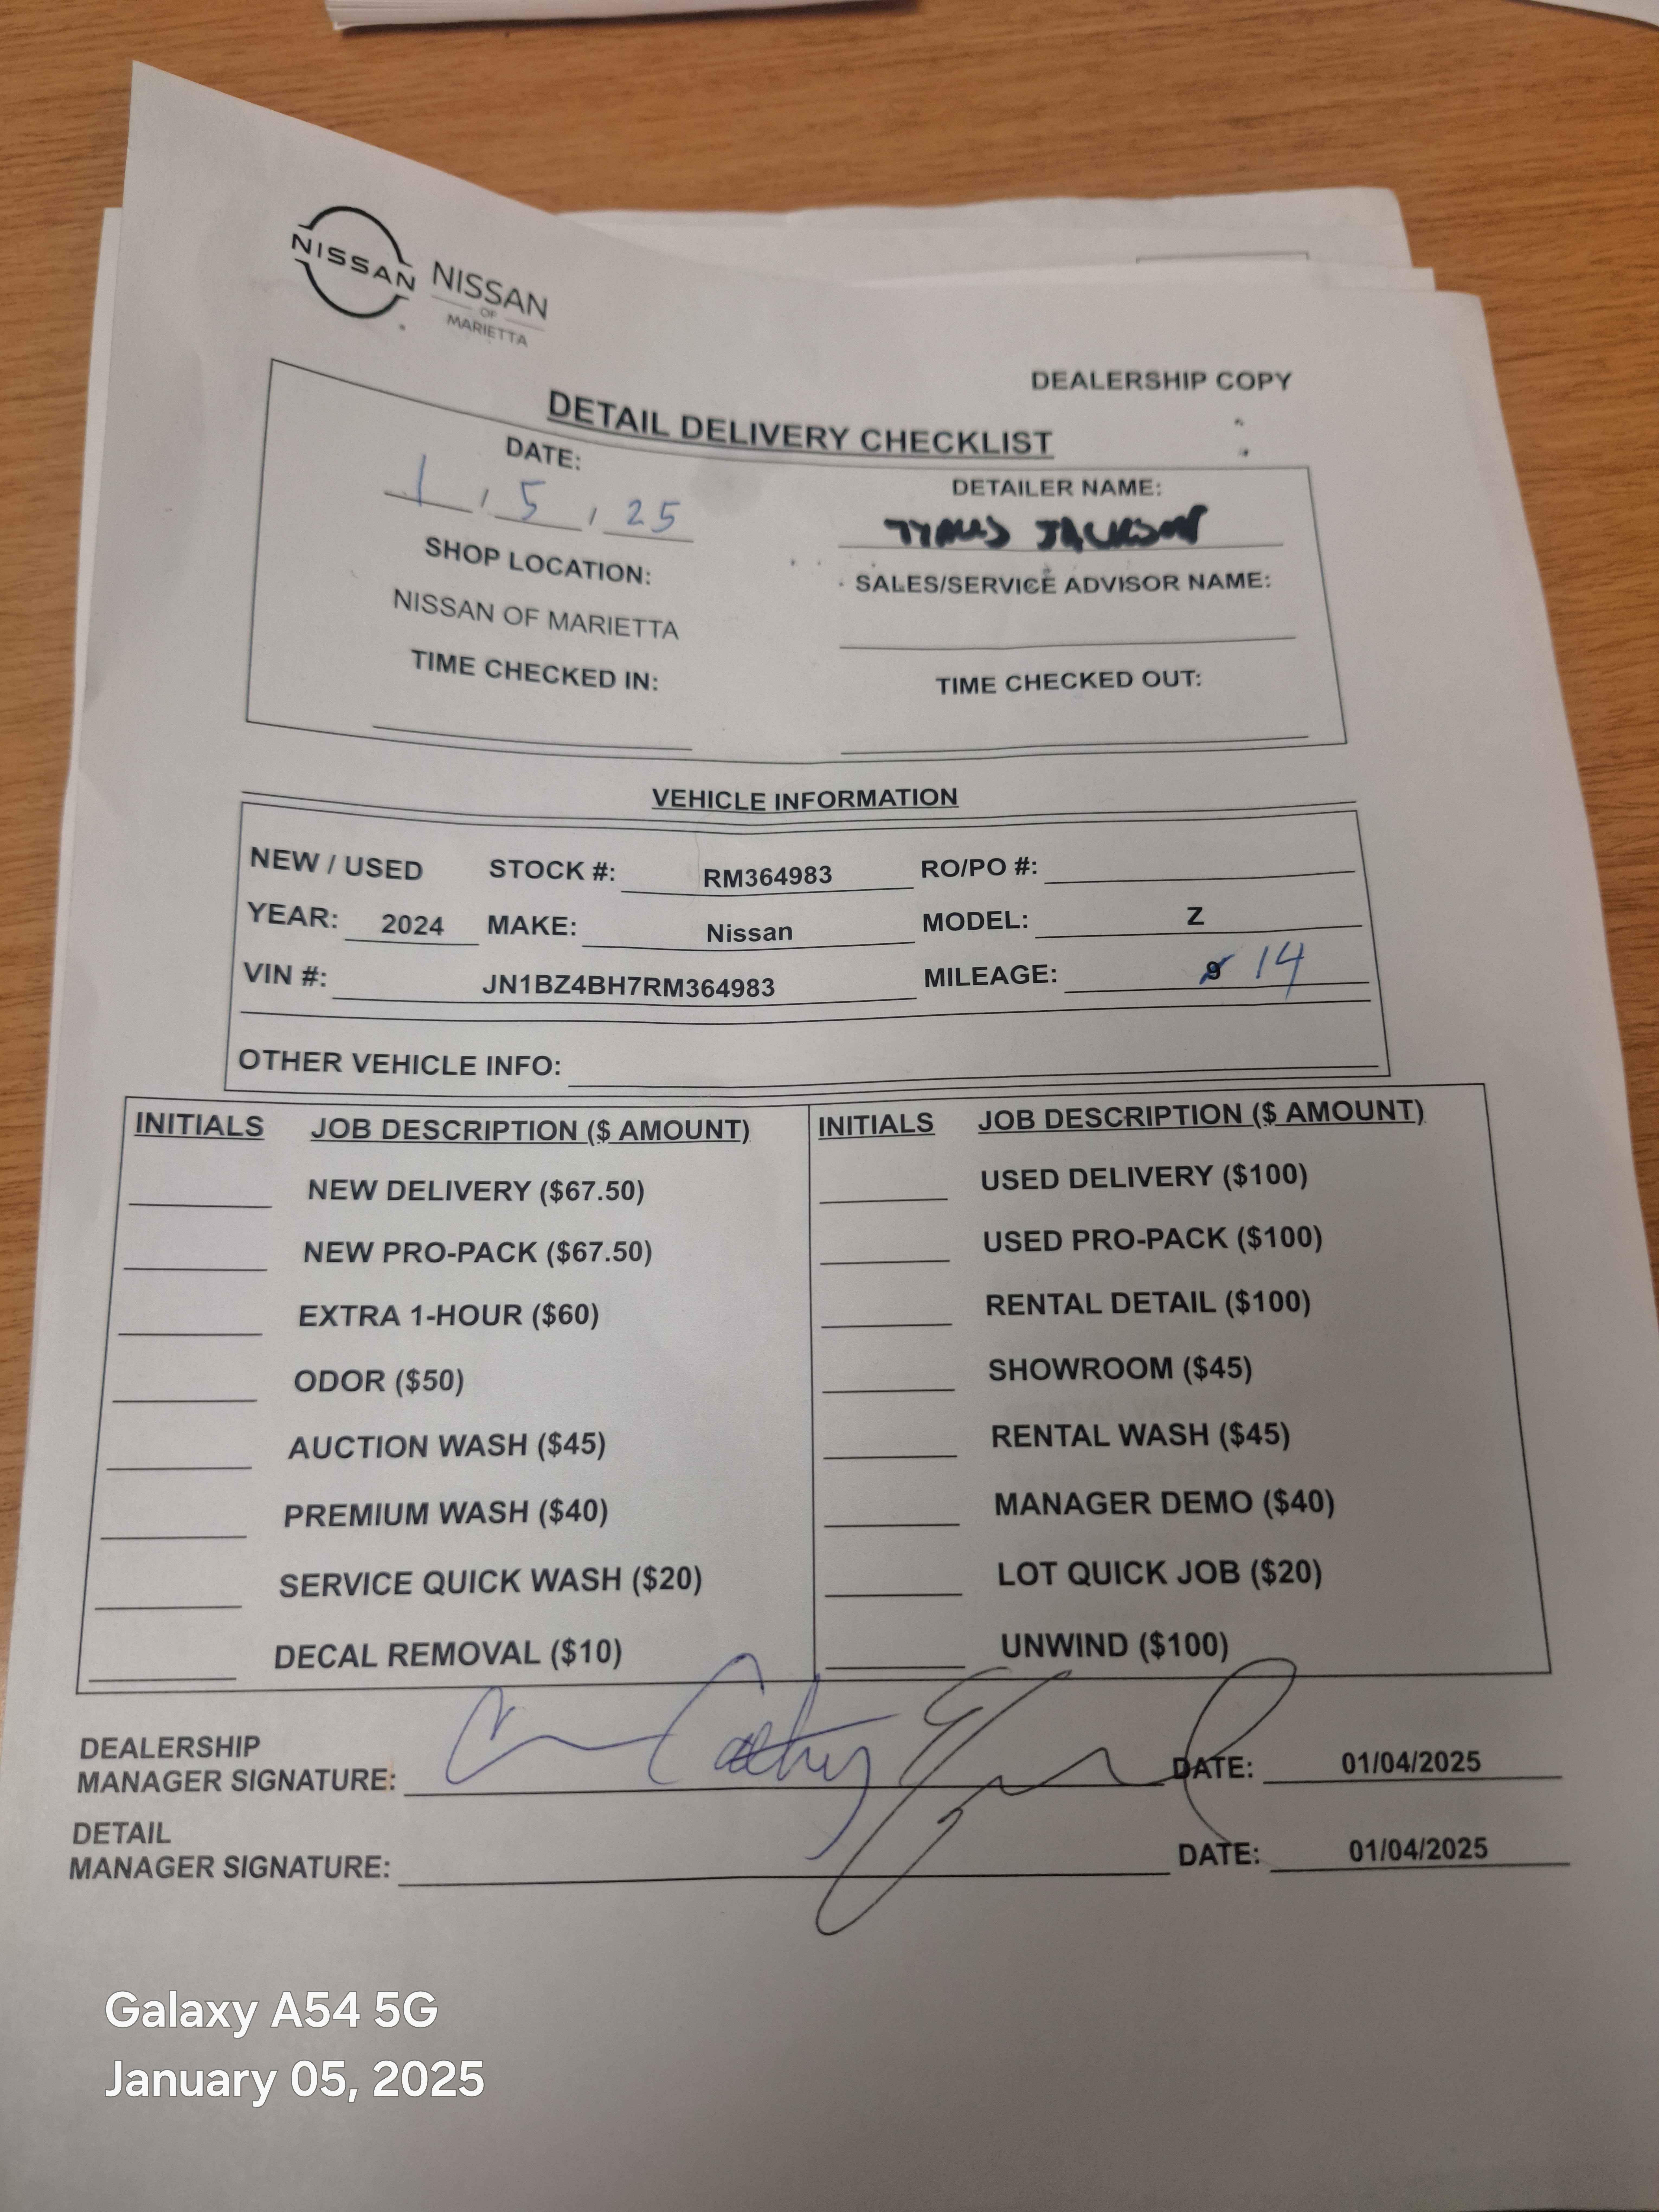 NISSAN NISSAN
OF
MARIETTA
DEALERSHIP COPY
DETAIL DELIVERY CHECKLIST
DATE:
1 / 5 / 25
DETAILER NAME:
JACKSON
SHOP LOCATION:
NISSAN OF MARIETTA
SALES/SERVICE ADVISOR NAME:
TIME CHECKED IN:
TIME CHECKED OUT:
VEHICLE INFORMATION
NEW / USED STOCK #: RM364983 RO/PO #:
YEAR: 2024 MAKE: Nissan MODEL: Z
VIN #: JN1BZ4BH7RM364983 MILEAGE: 9 14
OTHER VEHICLE INFO:
INITIALS JOB DESCRIPTION ($ AMOUNT) INITIALS JOB DESCRIPTION ($ AMOUNT)
NEW DELIVERY ($67.50) USED DELIVERY ($100)
NEW PRO-PACK ($67.50) USED PRO-PACK ($100)
EXTRA 1-HOUR ($60) RENTAL DETAIL ($100)
ODOR ($50) SHOWROOM ($45)
AUCTION WASH ($45) RENTAL WASH ($45)
PREMIUM WASH ($40) MANAGER DEMO ($40)
SERVICE QUICK WASH ($20) LOT QUICK JOB ($20)
DECAL REMOVAL ($10) UNWIND ($100)
DEALERSHIP
MANAGER SIGNATURE: DATE: 01/04/2025
DETAIL
MANAGER SIGNATURE: DATE: 01/04/2025
Galaxy A54 5G
January 05, 2025